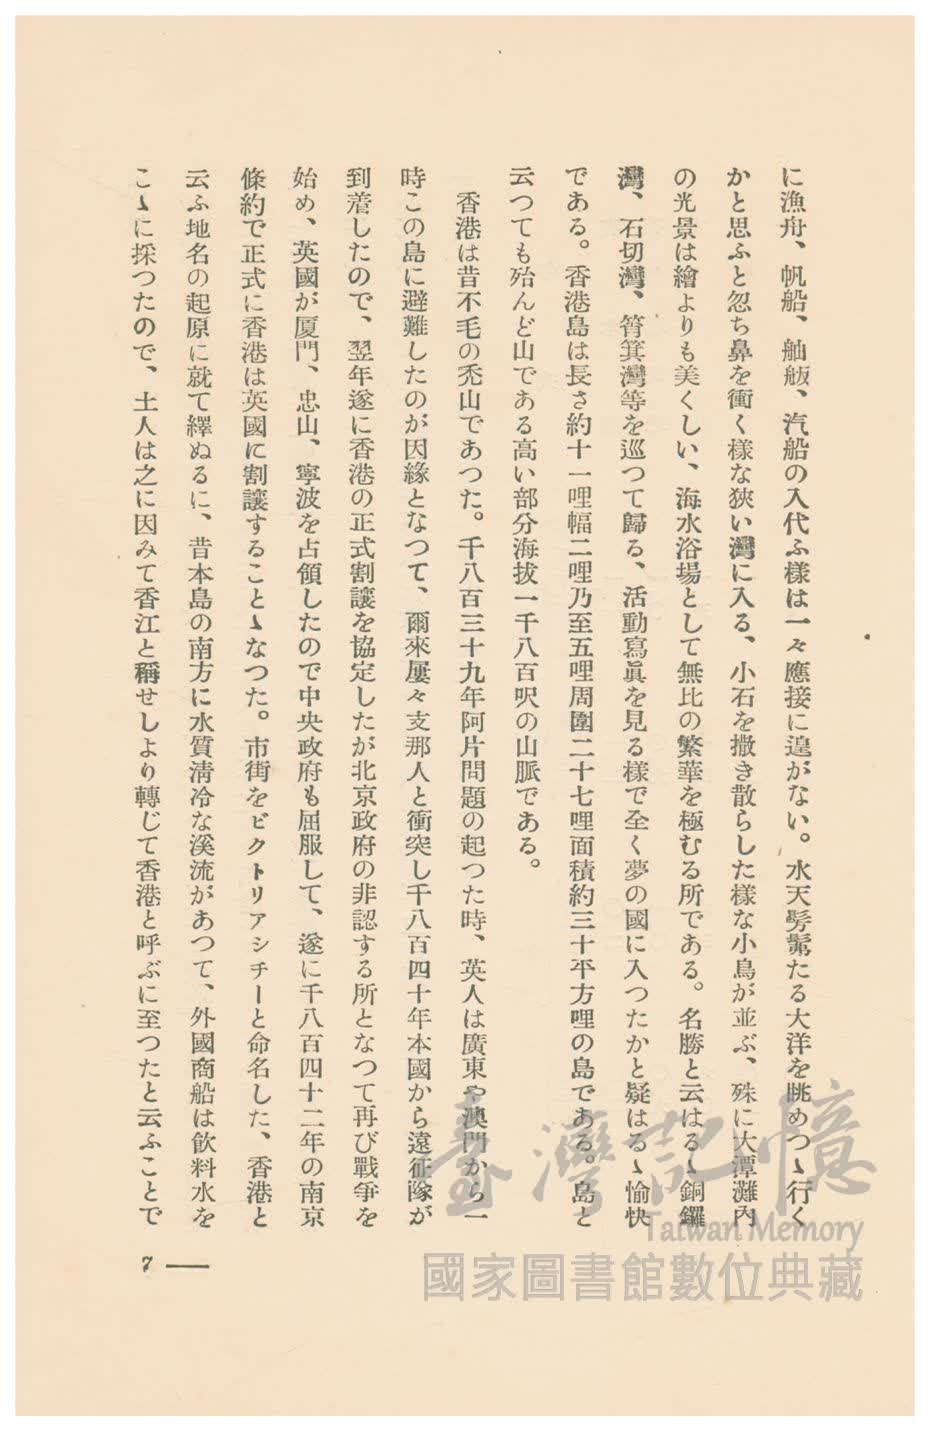 に漁舟、帆船、舢舨、汽船の入代ふ樣は一々應接に遑がない。水天髣髴たる大洋を眺めつゝ行く
かと思ふと忽ち鼻を衝く樣な狹い灣に入る、小石を撒き散らした樣な小島が並ぶ、殊に大潭灘內
の光景は繪よりも美くしい、海水浴場として無比の繁華を極むる所である。名勝と云はるゝ銅鑼
灣、石切灣、筲箕灣等を巡つて歸る、活動寫眞を見る樣で全く夢の國に入つたかと疑はるゝ愉快
である。香港島は長さ約十一哩幅二哩乃至五哩周圍二十七哩面積約三十平方哩の島である。島と
云つても殆んど山である高い部分海拔一千八百呎の山脈である。
香港は昔不毛の禿山であつた。千八百三十九年阿片問題の起つた時、英人は廣東や澳門から一
時この島に避難したのが因緣となつて、爾來屢々支那人と衝突し千八百四十年本國から遠征隊が
到着したので、翌年遂に香港の正式割讓を協定したが北京政府の非認する所となつて再び戰爭を
始め、英國が厦門、忠山、寧波を占領したので中央政府も屈服して、遂に千八百四十二年の南京
條約で正式に香港は英國に割讓することゝなつた。市街をビクトリアシチーと命名した、香港と
云ふ地名の起原に就て繹ぬるに、昔本島の南方に水質淸冷な溪流があつて、外國商船は飲料水を
こゝに採つたので、土人は之に因みて香江と稱せしより轉じて香港と呼ぶに至つたと云ふことで
7
臺灣記憶
Taiwan Memory
國家圖書館數位典藏